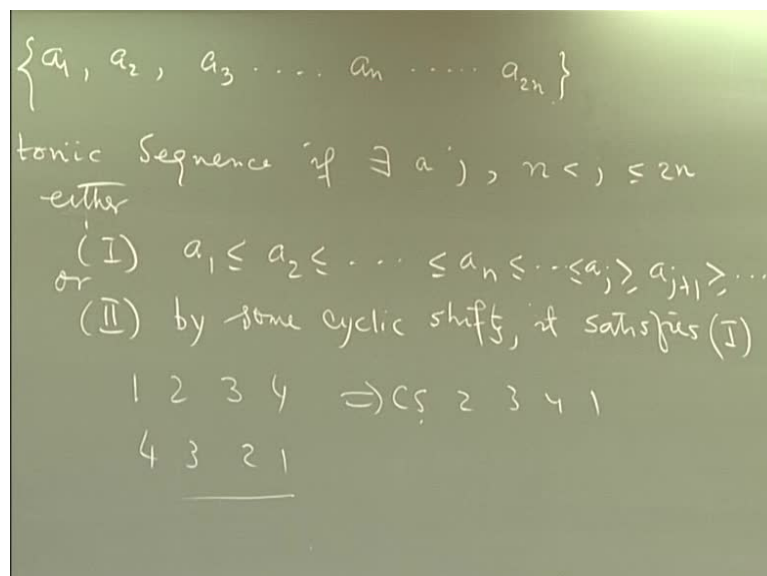 {a1, a2, a3 .... an ..... a2n}
tonic Sequence if ∃ a j, n < j ≤ 2n
either
(I) a1 ≤ a2 ≤ ... ≤ an ≤ ... ≤ aj ≥ aj+1 ≥ ...
or
(II) by some cyclic shift, it satisfies (I)
1 2 3 4 ⇒ CS 2 3 4 1
4 3 2 1